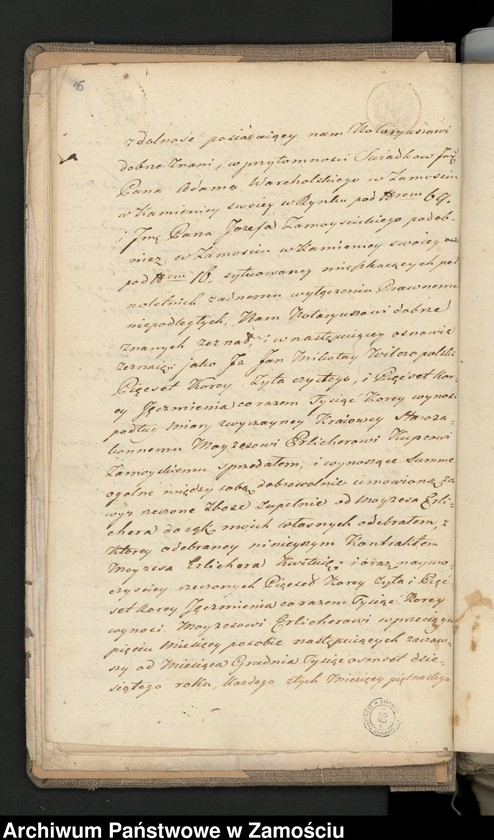 zdolność posiadaiący nam Notaryuszowi
dobrze znani, w przytomności Swiadkow Jmć
Pana Adama Warcholskiego w Zamościu
w Kamienicy swoiey w Rynku pod Nrem 69.
i Jmć Pana Jozefa Zamoyscickiego podob-
nież w Zamościu w Kamienicy swoiey
pod Nrem 18. sytuowaney mieszkaiących peł-
noletnich żadnemu wyłączeniu Prawnemu
niepodległych, Nam Notaryuszowi dobrze
znanych zeznał; i w następuiącey osnowie
zeznaią: jako Ja Jan Mikołay
Pięćset Korcy Żyta czystego, i Pięćset Kor-
cy Jęczmienia co razem Tysiąc Korcy wynosi
podług miary zwyczayney Kraiowey Staroza-
konnemu Moyzesowi Erlicherowi Kupcowi
Zamoyskiemu sprzedałem, i wynoszące Summe
ogólne między sobą dobrowolnie umowioną za
wyż rzeczone zboże zupełnie od Moyzesa Erli-
chera do rąk moich własnych odebrałem, z
ktorey odebraney ninieyszym Kontraktem
Moyzesa Erlichera Kwituię; i oraz nayuro-
czyściey rzeczonych Pięćset Korcy Żyta i Pięć-
set Korcy Jęczmienia co razem Tysiąc Korcy
wynosi Moyzesowi Erlicherowi w przeciągu
pięciu Miesięcy po sobie następuiących zacząw-
szy od Miesiąca Grudnia Tysiąc osmset dzie-
siątego roku, każdego z tych Miesięcy piętnastego
Archiwum Państwowe w Zamościu